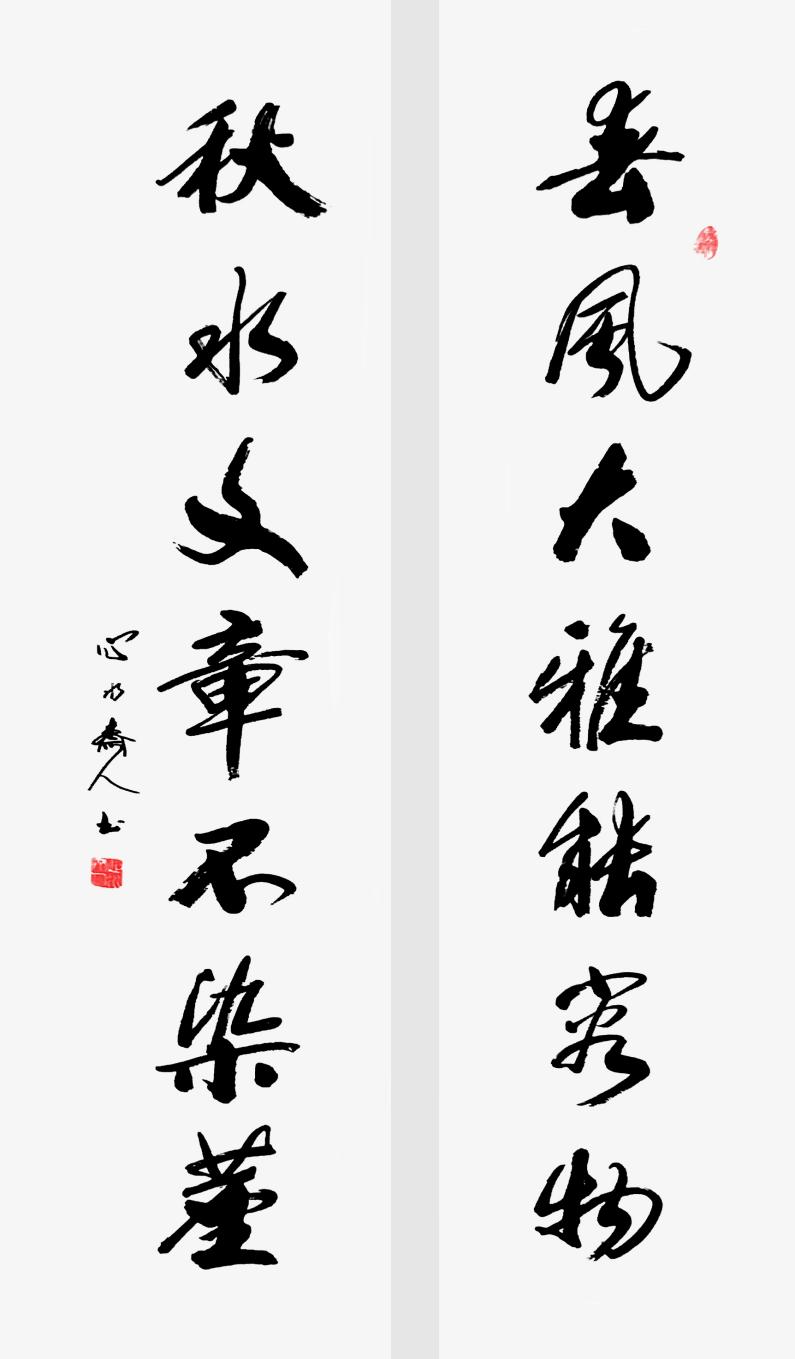 春風大雅能容物
秋水文章不染塵
心水齋人书